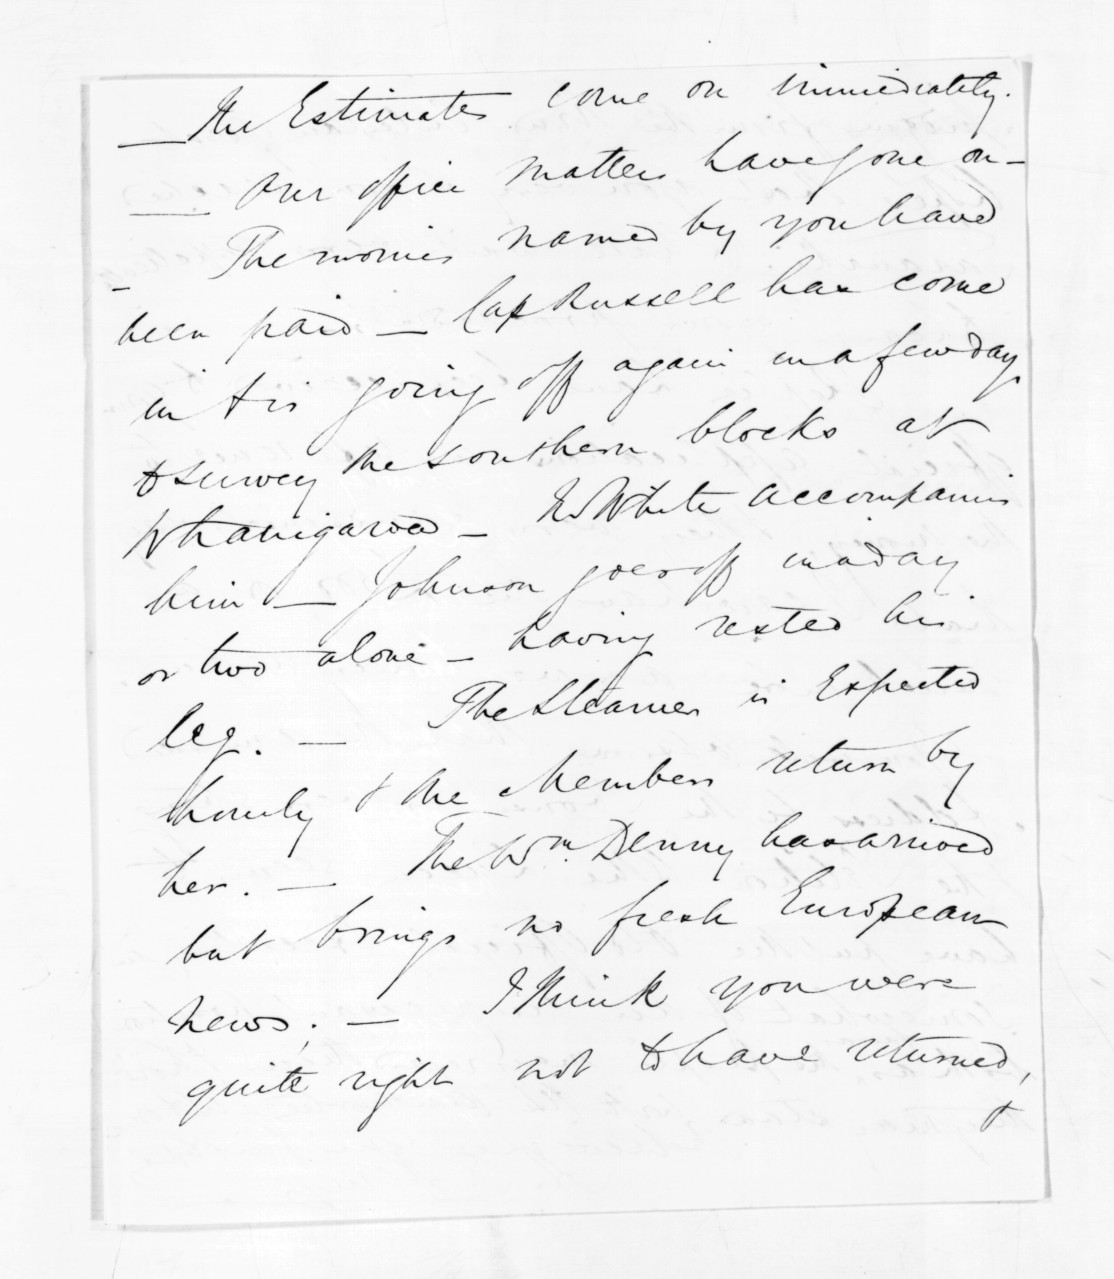 — The Estimates come on immediately.
— Our office matters have gone on —
- The monies named by you have
been paid — Cap Russell has come
in & is going off again in a few days
to survey the southern blocks at
Whanigaroa — Mr White accompanies
him — Johnson goes off in a day
or two alone — having rested his
leg. — The Steamer is Expected
hourly & the Members return by
her. — The Wm. Denny has arrived
but brings no fresh European
news; — I think you were
quite right not to have returned,
&